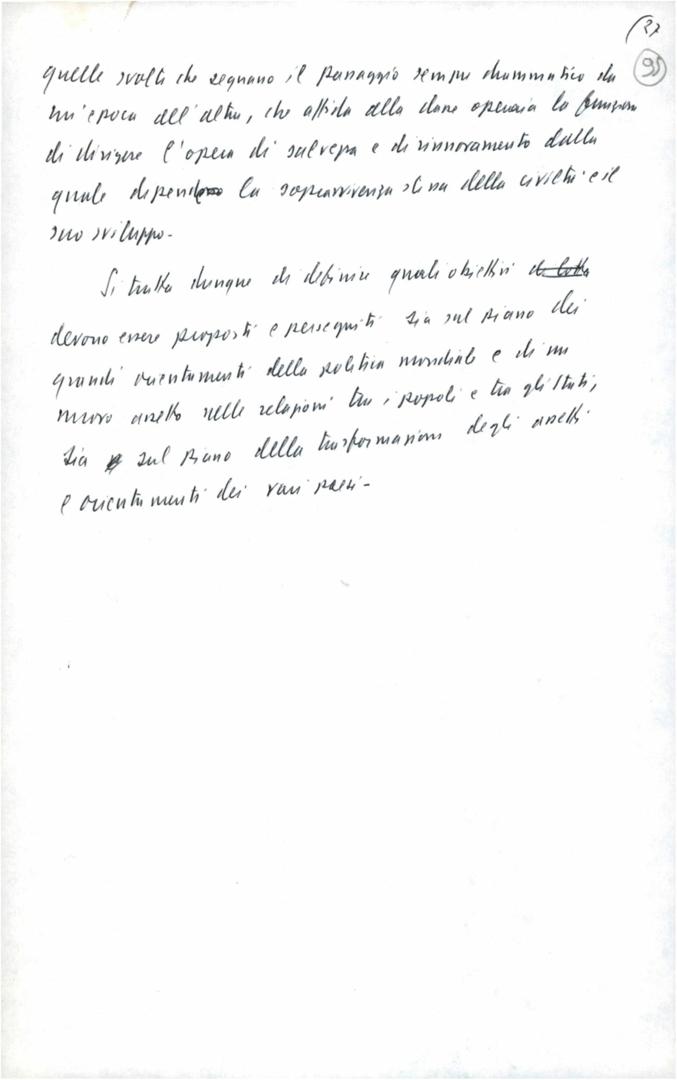 (37
95
quelle svolte che segnano il passaggio sempre drammatico da
un'epoca all'altra, che affida alla classe operaia la funzione
di dirigere l'opera di salvezza e di rinnovamento dalla
quale dipende la sopravvivenza stessa della civiltà e il
suo sviluppo.
Si tratta dunque di definire quali obiettivi di lotta
devono essere proposti e perseguiti sia sul piano dei
grandi orientamenti della politica mondiale e di un
nuovo assetto nelle relazioni tra i popoli e tra gli Stati,
sia sul piano della trasformazione degli assetti
e orientamenti dei vari paesi.